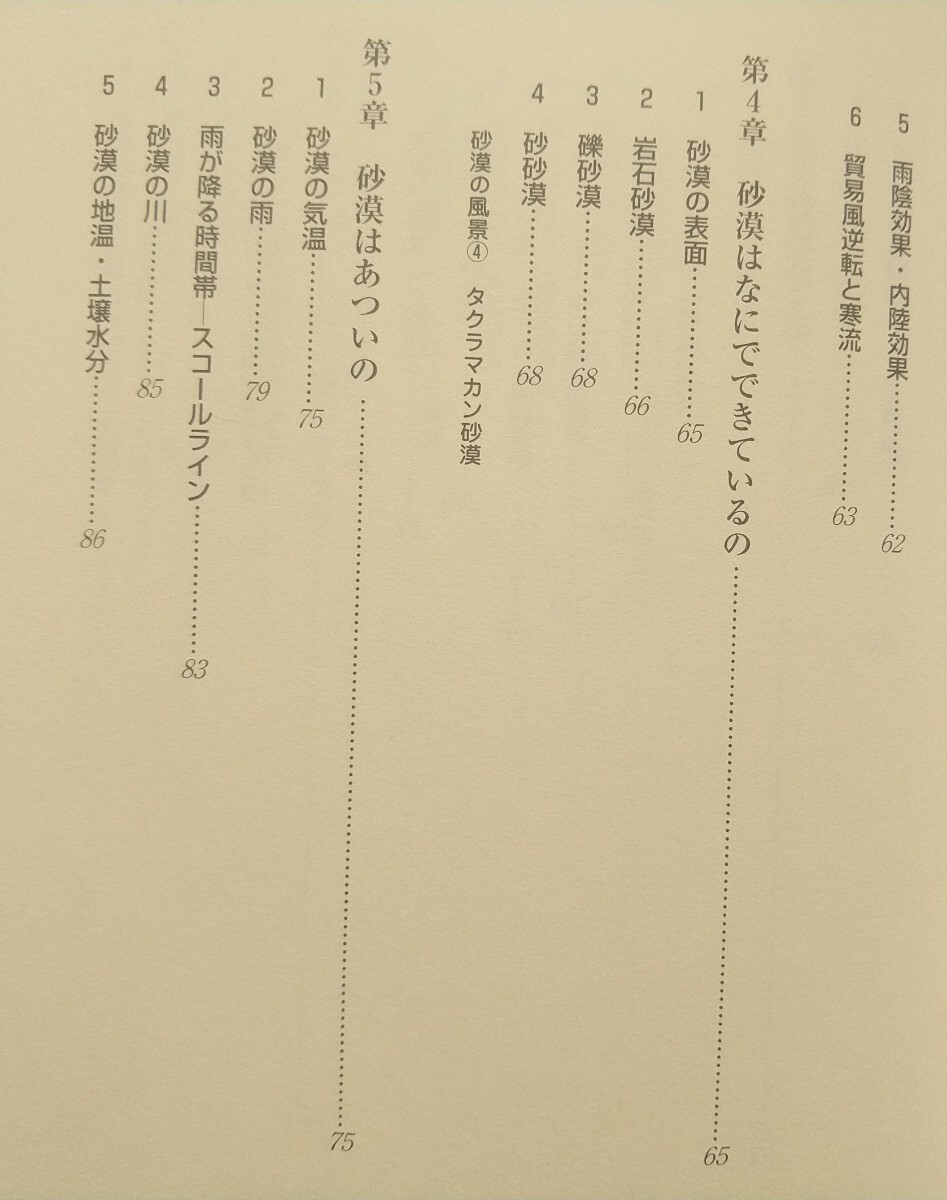 5 雨陰効果・内陸効果……………… 62
6 貿易風逆転と寒流……………… 63
第4章 砂漠はなにでできているの ……………………………………… 65
1 砂漠の表面……………… 65
2 岩石砂漠……………… 66
3 礫砂漠……………… 68
4 砂砂漠……………… 68
砂漠の風景④ タクラマカン砂漠
第5章 砂漠はあついの ……………………………………… 75
1 砂漠の気温……………… 75
2 砂漠の雨……………… 79
3 雨が降る時間帯―スコールライン……………… 83
4 砂漠の川……………… 85
5 砂漠の地温・土壌水分……………… 86